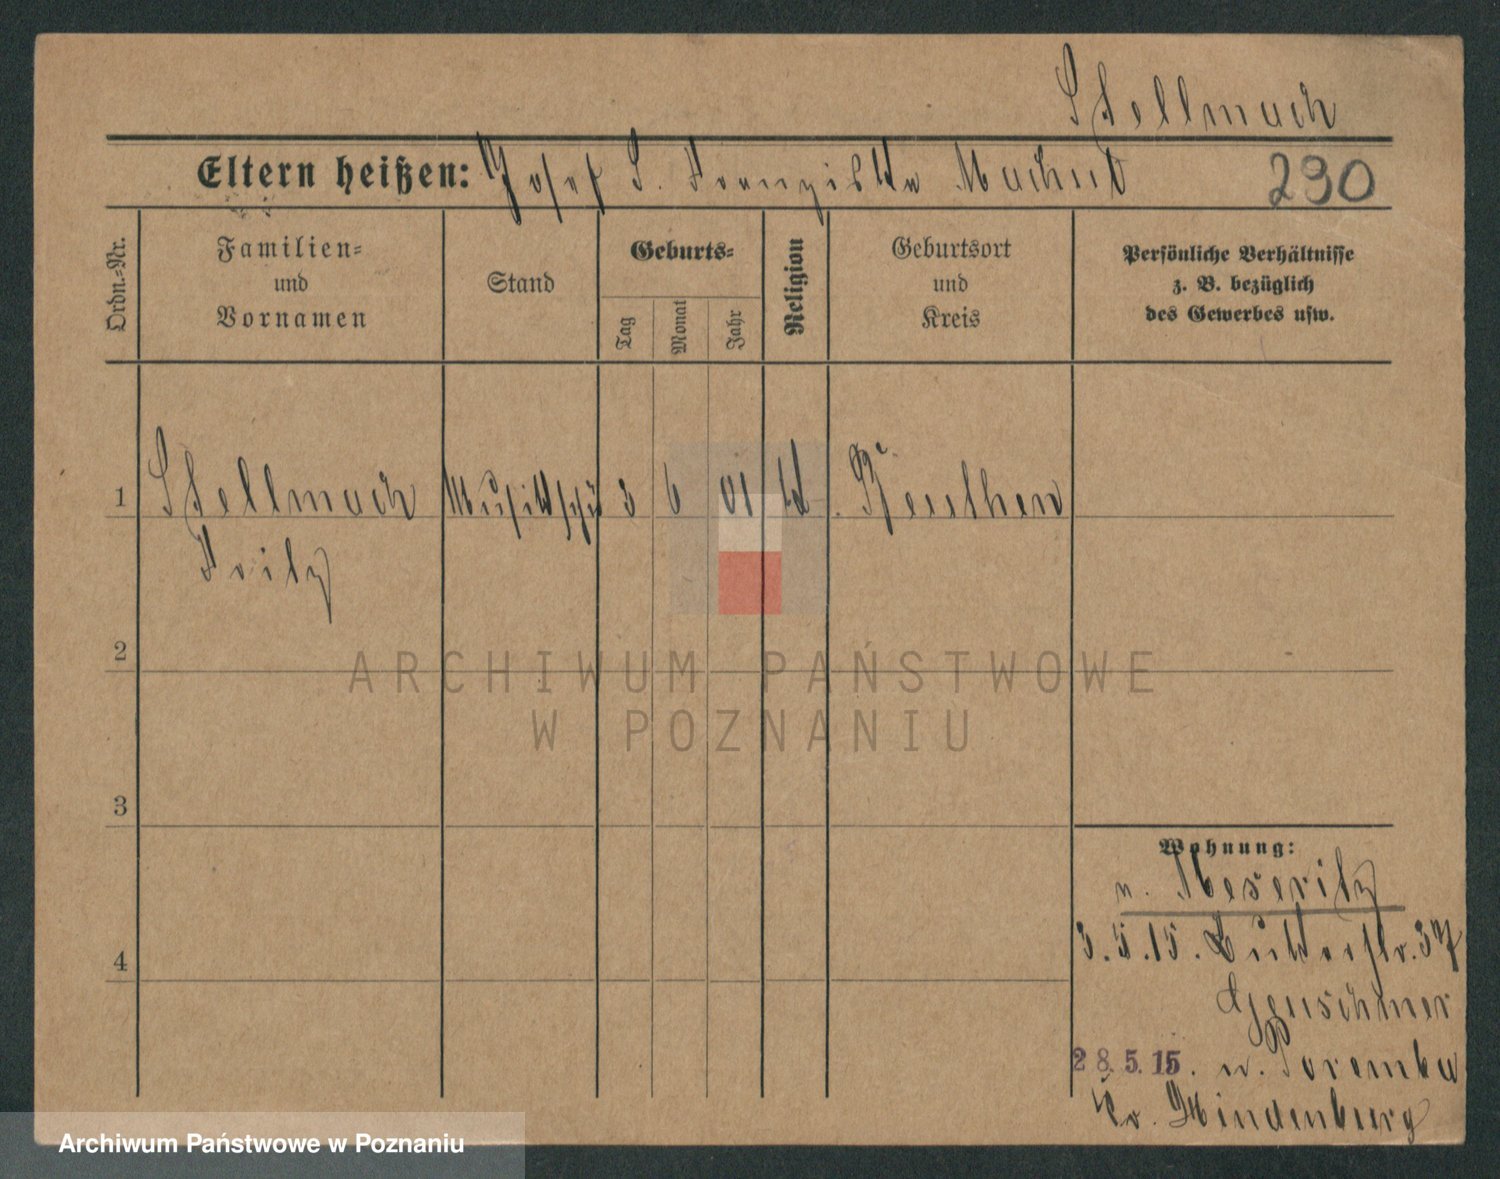 Stellmach
Eltern heißen: Josef S. Franziska Machul
290
Ordn.-Nr.
Familien-
und
Vornamen
Stand
Geburts-
Tag
Monat
Jahr
Religion
Geburtsort
und
Kreis
Persönliche Verhältnisse
z. B. bezüglich
des Gewerbes usw.
1 Stellmach 3 6 01 Beuthen
Fritz
2
ARCHIWUM PAŃSTWOWE
W POZNANIU
3
Wohnung:
n. Meseritz
4
3.5.15. 37
28.5.15. n. Poremba
Kr. Hindenburg
Archiwum Państwowe w Poznaniu